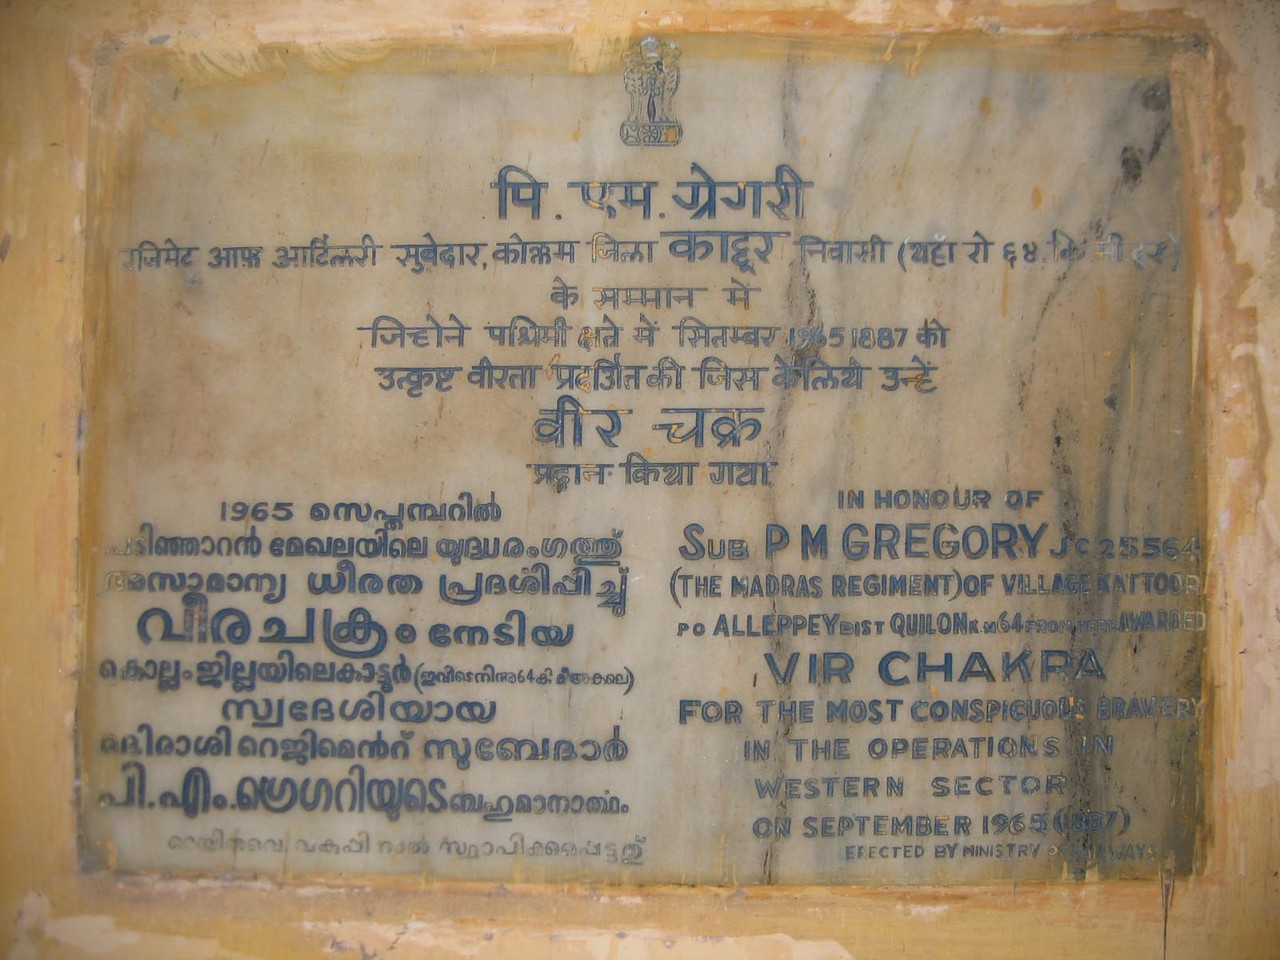 पि. एम. ग्रेगरी
रजिमेट आफ़ आर्टिलरी सुवेदार, कोल्लम जिला काट्टूर निवासी (यहाँ रो ६४ कि मी
के सम्मान में
पश्चिमी में सितम्बर 1965 1887 को
उत्कृष्ट वीरता की जिस केलिये उन्हें
वीर चक्र
प्रदान किया गया
1965 സെപ്തമ്പറിൽ
പടിഞ്ഞാറൻ മേഖലയിലെ യുദ്ധരംഗത്ത്
അസാമാന്യ ധീരത പ്രദർശിപ്പിച്ച്
വീരചക്രം നേടിയ
കൊല്ലംജില്ലയിലെകാട്ടൂർ (ഇവിടെനിന്നു64കി മീ അകലെ)
സ്വദേശിയായ
മദിരാശി റെജിമെൻറ് സുബേദാർ
പി.എം.ഗ്രെഗറിയുടെബഹുമാനാർത്ഥം
റെയിൽവെ വകുപ്പിനാൽ സ്ഥാപിക്കപ്പെട്ടത്
IN HONOUR OF
SUB P M GREGORY JC 25564
(THE MADRAS REGIMENT) OF VILLAGE KATTOOR
PO ALLEPPEY DIST QUILON K.M 64 FROM HERE AWARDED
VIR CHAKRA
FOR THE MOST CONSPICUOUS BRAVERY
IN THE OPERATIONS IN
WESTERN SECTOR
ON SEPTEMBER 1965 (1887)
ERECTED BY MINISTRY OF RAILWAYS